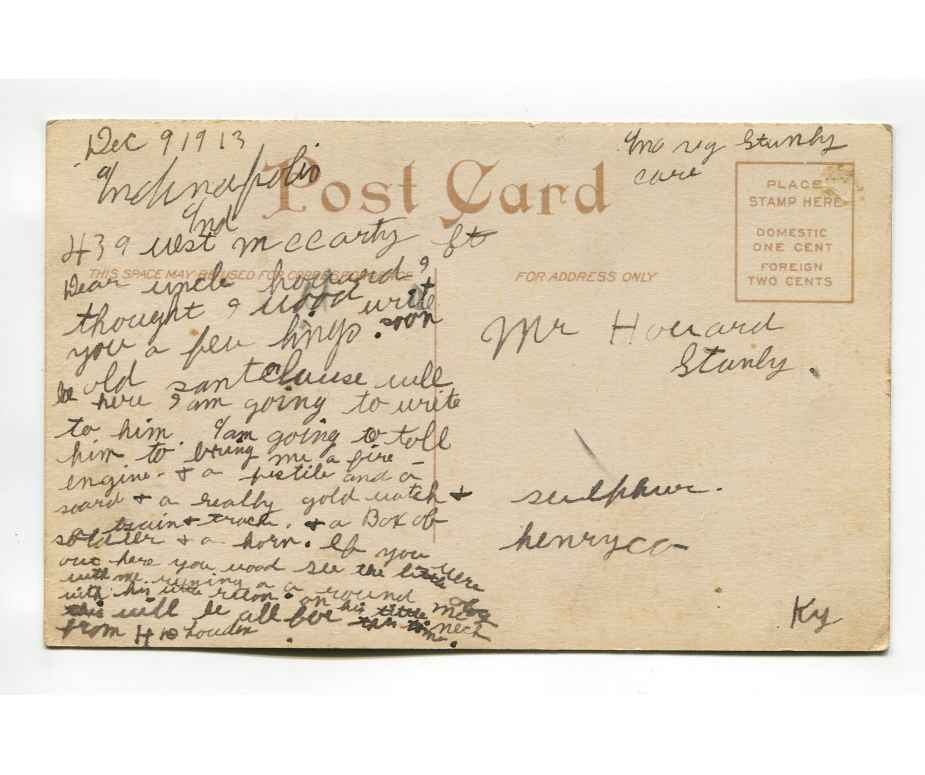 Dec 9 1913
Indinapolis
Ind
439 west mccarty st
Post Card
THIS SPACE MAY BE USED FOR CORRESPONDENCE
Dear uncle howard, I
thought I wood write
you a few lings. soon
old santclause will
be here I am going to write
to him. I am going to tell
him to bring me a fire
engine - & a pistile and a
soard & a really gold watch &
a train & track. & a Box of
soldier & a horn. If you were
out here you wood see the little Dog
with me runing a round
with his little ribon on his neck
this will be all for this time.
from H Louden
mary Stanly
care
PLACE
STAMP HERE
DOMESTIC
ONE CENT
FOREIGN
TWO CENTS
FOR ADDRESS ONLY
Mr Howard
Stanly.
sulphur.
henry co
Ky